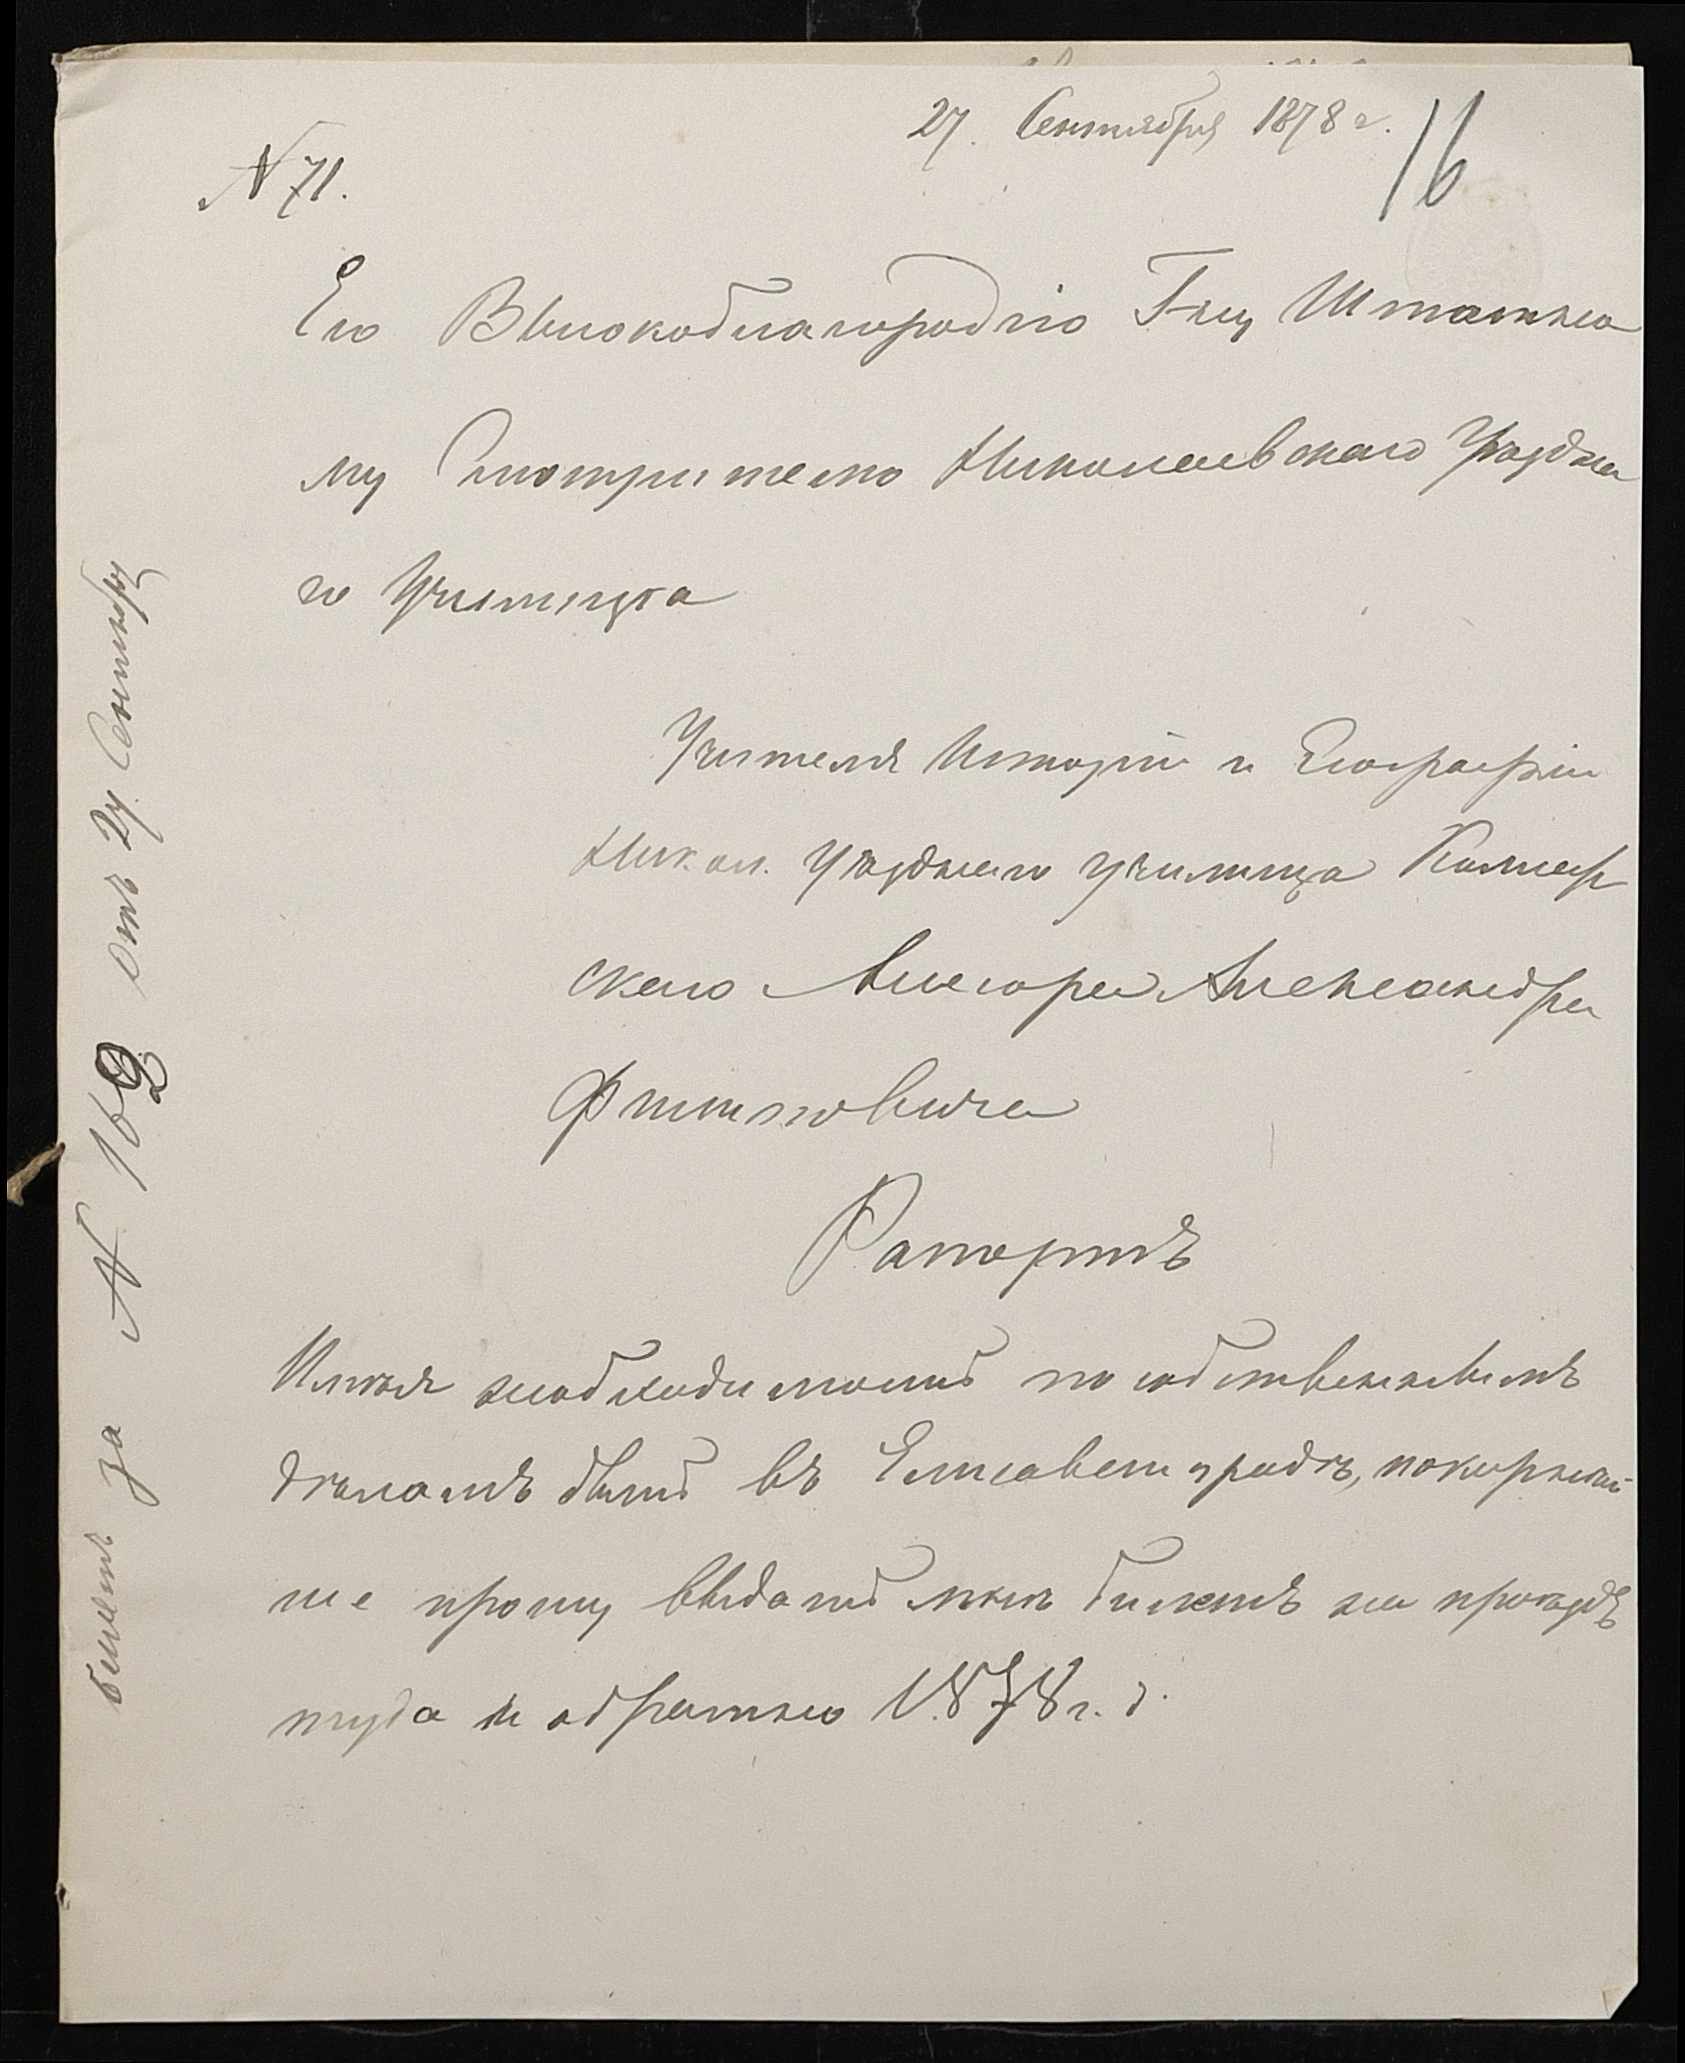 27. Сентября 1878 г.
16
N 71.
Его Высокоблагородію Г-ну Штатно
му Смотрителю Николаевскаго Уѣздна
го Училища
Учителя Исторіи и Географіи
Никол. уѣзднаго училища
скаго Александра
Филиповича
Рапортъ
Имѣя необходимость по собственнымъ
дѣламъ быть въ Елисаветградѣ, покорнѣй
ше прошу выдать мнѣ билетъ на проѣздъ
туда и обратно 1878 г.
билетъ за N 169 отъ 27 Сентября